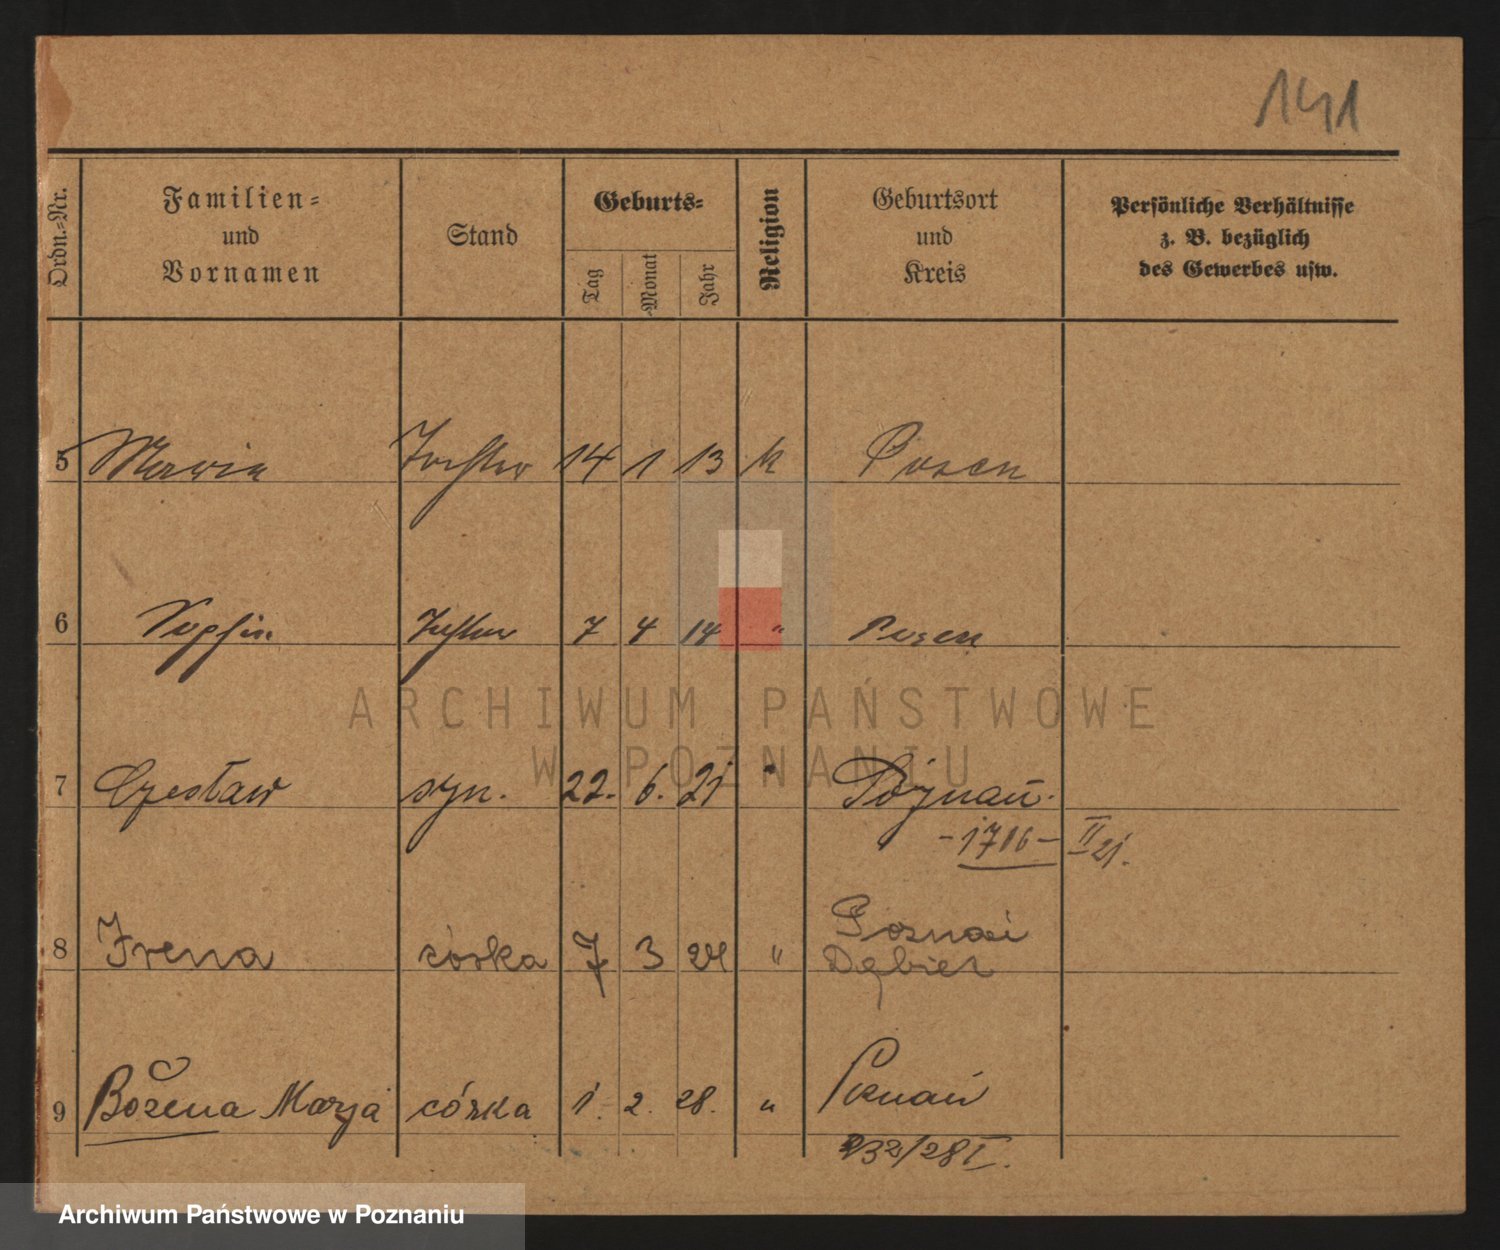 141
Ordn.-Nr.
Familien-
und
Vornamen
Stand
Geburts-
Tag
Monat
Jahr
Religion
Geburtsort
und
Kreis
Persönliche Verhältnisse
z. B. bezüglich
des Gewerbes usw.
5 Maria Tochter 14 1 13 k Posen
6 Sophie Tochter 7 4 14 " Posen
ARCHIWUM PAŃSTWOWE
W POZNANIU
7 Czesław syn. 22. 6. 21 " Poznań.
-1716- II 21.
Poznań
8 Irena córka 7 3 24 " Dębiec
9 Bożena Marja córka 1. 2. 28. " Poznań
232/28 I.
Archiwum Państwowe w Poznaniu